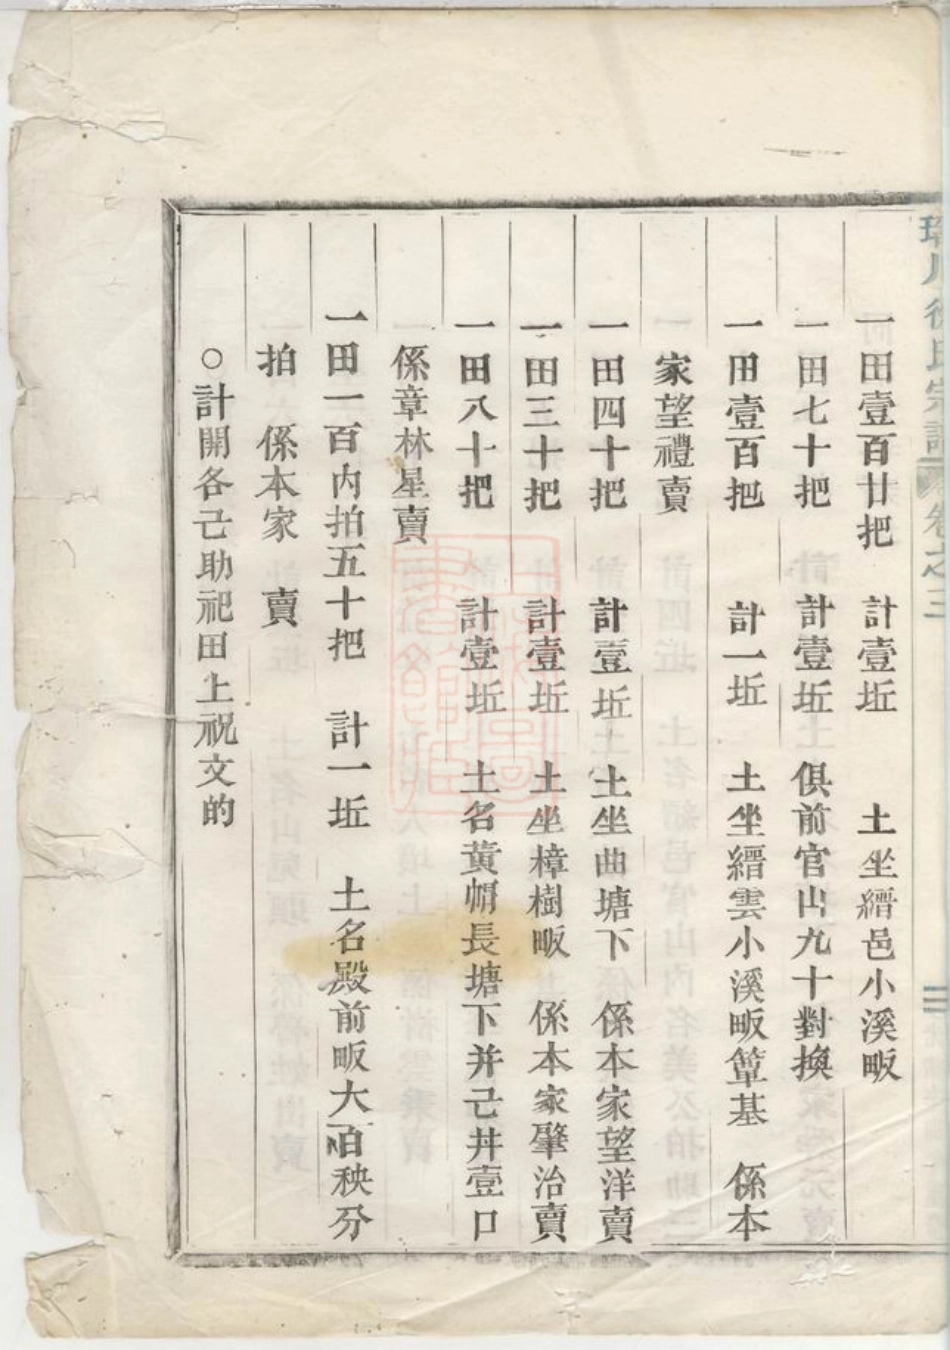 徐氏宗譜 卷之三
一田壹百廿把 計壹坵 土坐縉邑小溪畈
一田七十把 計壹坵 俱前官山九十對換
一田壹百把 計一坵 土坐縉雲小溪畈簟基 係本
家望禮賣
一田四十把 計壹坵 土坐曲塘下 係本家望洋賣
一田三十把 計壹坵 土坐樟樹畈 係本家肇治賣
一田八十把 計壹坵 土名黄㡌長塘下并己井壹口
係章林星賣
一田一百内拍五十把 計一坵 土名殿前畈大百秧分
拍 係本家 賣
○計開各己助祀田上祝文的